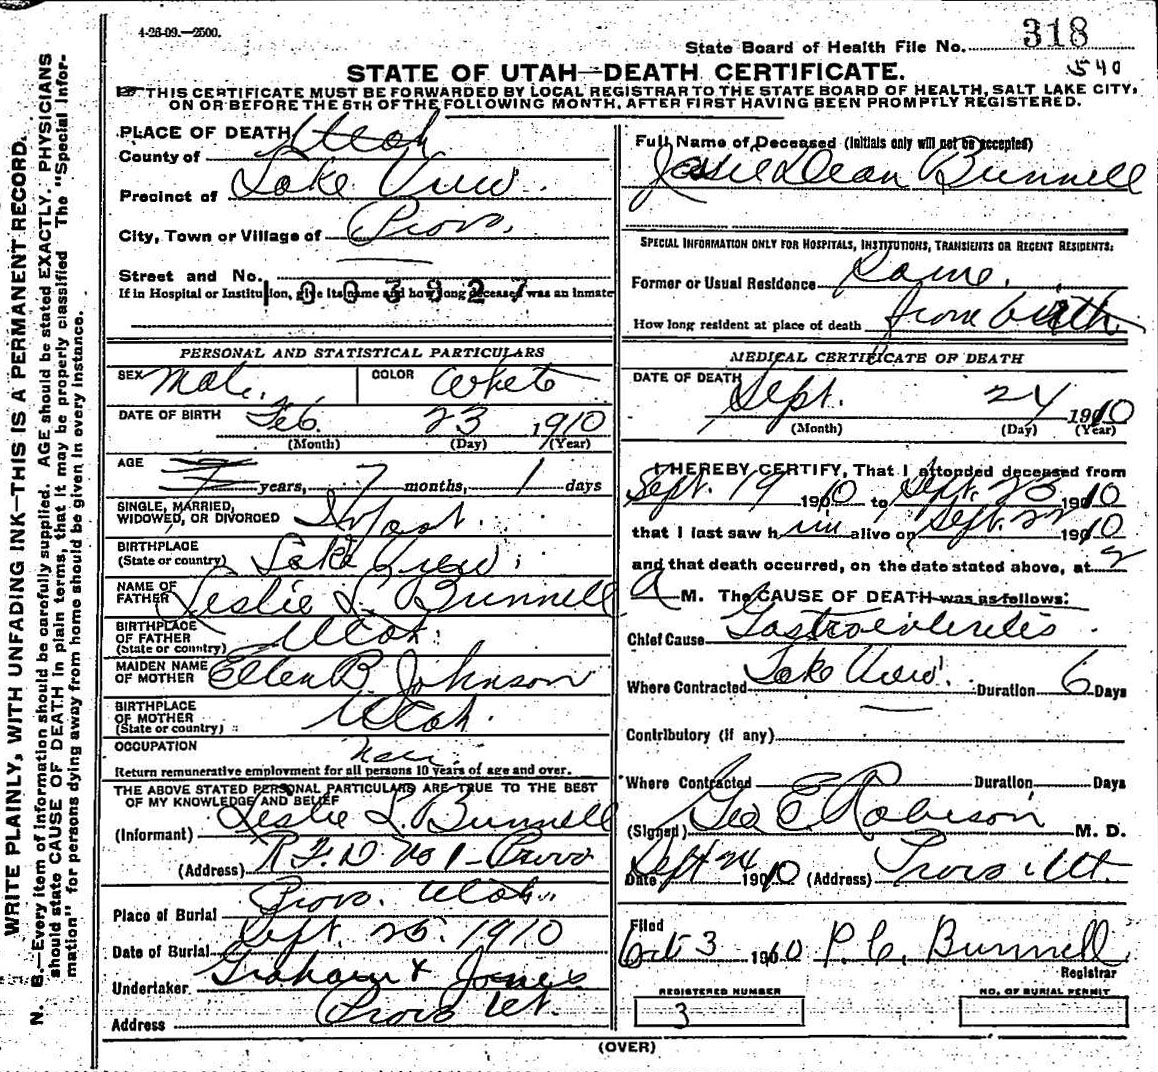 4-26-09.—2500.
State Board of Health File No. 318
540
STATE OF UTAH—DEATH CERTIFICATE.
THIS CERTIFICATE MUST BE FORWARDED BY LOCAL REGISTRAR TO THE STATE BOARD OF HEALTH, SALT LAKE CITY,
ON OR BEFORE THE 5TH OF THE FOLLOWING MONTH, AFTER FIRST HAVING BEEN PROMPTLY REGISTERED.
WRITE PLAINLY, WITH UNFADING INK—THIS IS A PERMANENT RECORD.
N. B.—Every item of information should be carefully supplied. AGE should be stated EXACTLY. PHYSICIANS
should state CAUSE OF DEATH in plain terms, that it may be properly classified. The "Special Infor-
mation" for persons dying away from home should be given in every instance.
PLACE OF DEATH
County of Utah
Precinct of Lake View
City, Town or Village of Provo.
Street and No.
1003927
If in Hospital or Institution, give its name and how long deceased was an inmate
PERSONAL AND STATISTICAL PARTICULARS
SEX Male. COLOR White
DATE OF BIRTH Feb. 23 1910
(Month) (Day) (Year)
AGE years, 7 months, 1 days
SINGLE, MARRIED,
WIDOWED, OR DIVORCED Infant.
BIRTHPLACE
(State or country) Lake View.
NAME OF
FATHER Leslie L. Bunnell
BIRTHPLACE
OF FATHER
(State or country) Utah.
MAIDEN NAME
OF MOTHER Ellen B. Johnson
BIRTHPLACE
OF MOTHER
(State or country) Utah.
OCCUPATION
Return remunerative employment for all persons 10 years of age and over.
THE ABOVE STATED PERSONAL PARTICULARS ARE TRUE TO THE BEST
OF MY KNOWLEDGE AND BELIEF
(Informant) Leslie L. Bunnell
(Address) R F D No 1 - Provo
Place of Burial Provo. Utah.
Date of Burial Sept. 25. 1910
Undertaker Graham & Jones
Address Provo Ut.
Full Name of Deceased (Initials only will not be accepted)
Dean Bunnell
SPECIAL INFORMATION ONLY FOR HOSPITALS, INSTITUTIONS, TRANSIENTS OR RECENT RESIDENTS:
Former or Usual Residence Same.
How long resident at place of death from birth
MEDICAL CERTIFICATE OF DEATH
DATE OF DEATH Sept. 24 1910
(Month) (Day) (Year)
I HEREBY CERTIFY, That I attended deceased from
Sept. 19 1910 to Sept. 23 1910
that I last saw h im alive on Sept. 22 1910
and that death occurred, on the date stated above, at 2
A M. The CAUSE OF DEATH was as follows:
Chief Cause Gastroenteritis.
Where Contracted Lake View. Duration 6 Days
Contributory (if any)
Where Contracted Duration Days
(Signed) Geo E. Robison M. D.
Date Sept 24 1910 (Address) Provo, Ut.
Filed
Oct 3 1910 P. C. Bunnell
Registrar
REGISTERED NUMBER
3
NO. OF BURIAL PERMIT
(OVER)